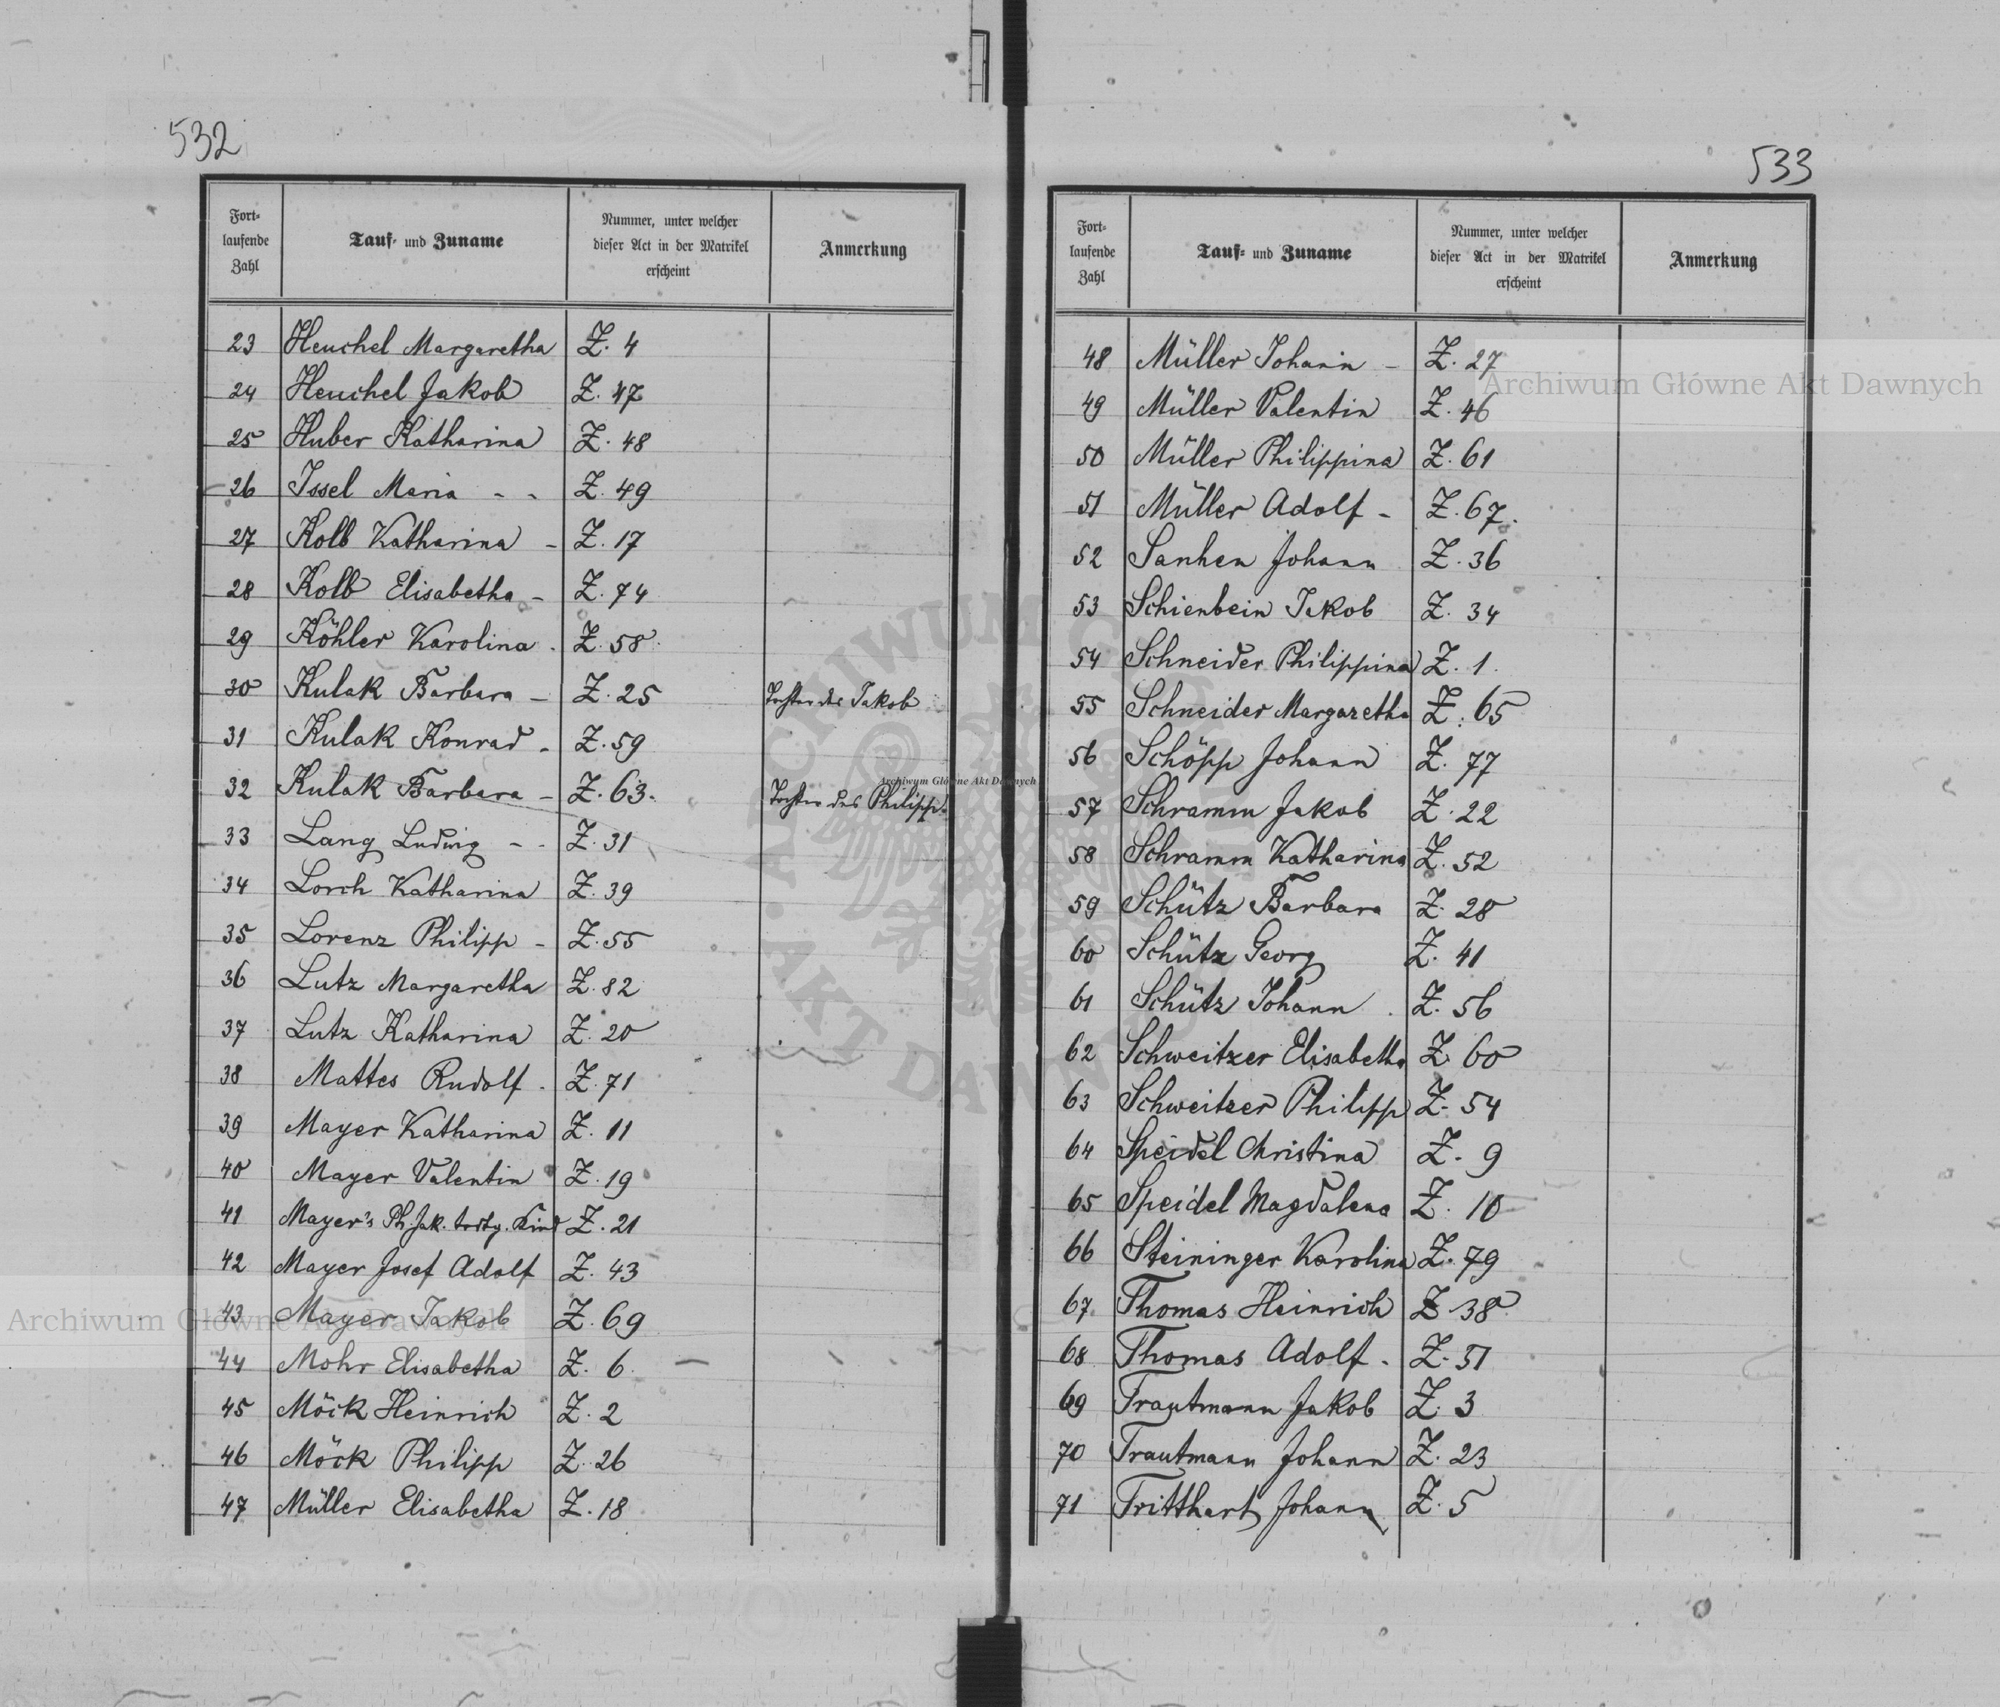 532
Fort-
laufende
Zahl
Tauf- und Zuname
Nummer, unter welcher
dieser Act in der Matrikel
erscheint
Anmerkung
23 Heuchel Margaretha Z. 4
24 Heuchel Jakob Z. 47
25 Huber Katharina Z. 48
26 Issel Maria - - Z. 49
27 Kolb Katharina - Z. 17
28 Kolb Elisabetha - Z. 74
29 Köhler Karolina . Z. 58.
30 Kulak Barbara - Z. 25 Tochter des Jakob
31 Kulak Konrad - Z. 59
32 Kulak Barbara - Z. 63. Tochter des Philipp.
33 Lang Ludwig - - Z. 31
34 Lorch Katharina Z. 39
35 Lorenz Philipp - Z. 55
36 Lutz Margaretha Z. 82
37 Lutz Katharina Z. 20
38 Mattes Rudolf . Z. 71
39 Mayer Katharina Z. 11
40 Mayer Valentin Z. 19
41 Mayer's Ph. Jak. todtg. Kind Z. 21
42 Mayer Josef Adolf Z. 43
43 Mayer Jakob Z. 69
44 Mohr Elisabetha Z. 6
45 Möck Heinrich Z. 2
46 Möck Philipp Z. 26
47 Müller Elisabetha Z. 18
533
Fort-
laufende
Zahl
Tauf- und Zuname
Nummer, unter welcher
dieser Act in der Matrikel
erscheint
Anmerkung
48 Müller Johann - Z. 27
49 Müller Valentin Z. 46
50 Müller Philippina Z. 61
51 Müller Adolf - Z. 67.
52 Sanhen Johann Z. 36
53 Schienbein Jakob Z. 34
54 Schneider Philippina Z. 1.
55 Schneider Margaretha Z. 65
56 Schöpp Johann Z. 77
57 Schramm Jakob Z. 22
58 Schramm Katharina Z. 52
59 Schütz Barbara Z. 28
60 Schütz Georg Z. 41
61 Schütz Johann . Z. 56
62 Schweitzer Elisabetha Z. 60
63 Schweitzer Philipp Z. 54
64 Speidel Christina Z. 9
65 Speidel Magdalena Z. 10
66 Steininger Karolina Z. 79
67 Thomas Heinrich Z. 38
68 Thomas Adolf - Z. 51
69 Trautmann Jakob Z. 3
70 Trautmann Johann Z. 23
71 Tritthart Johann Z. 5
Archiwum Główne Akt Dawnych
Archiwum Główne Akt Dawnych
Archiwum Główne Akt Dawnych